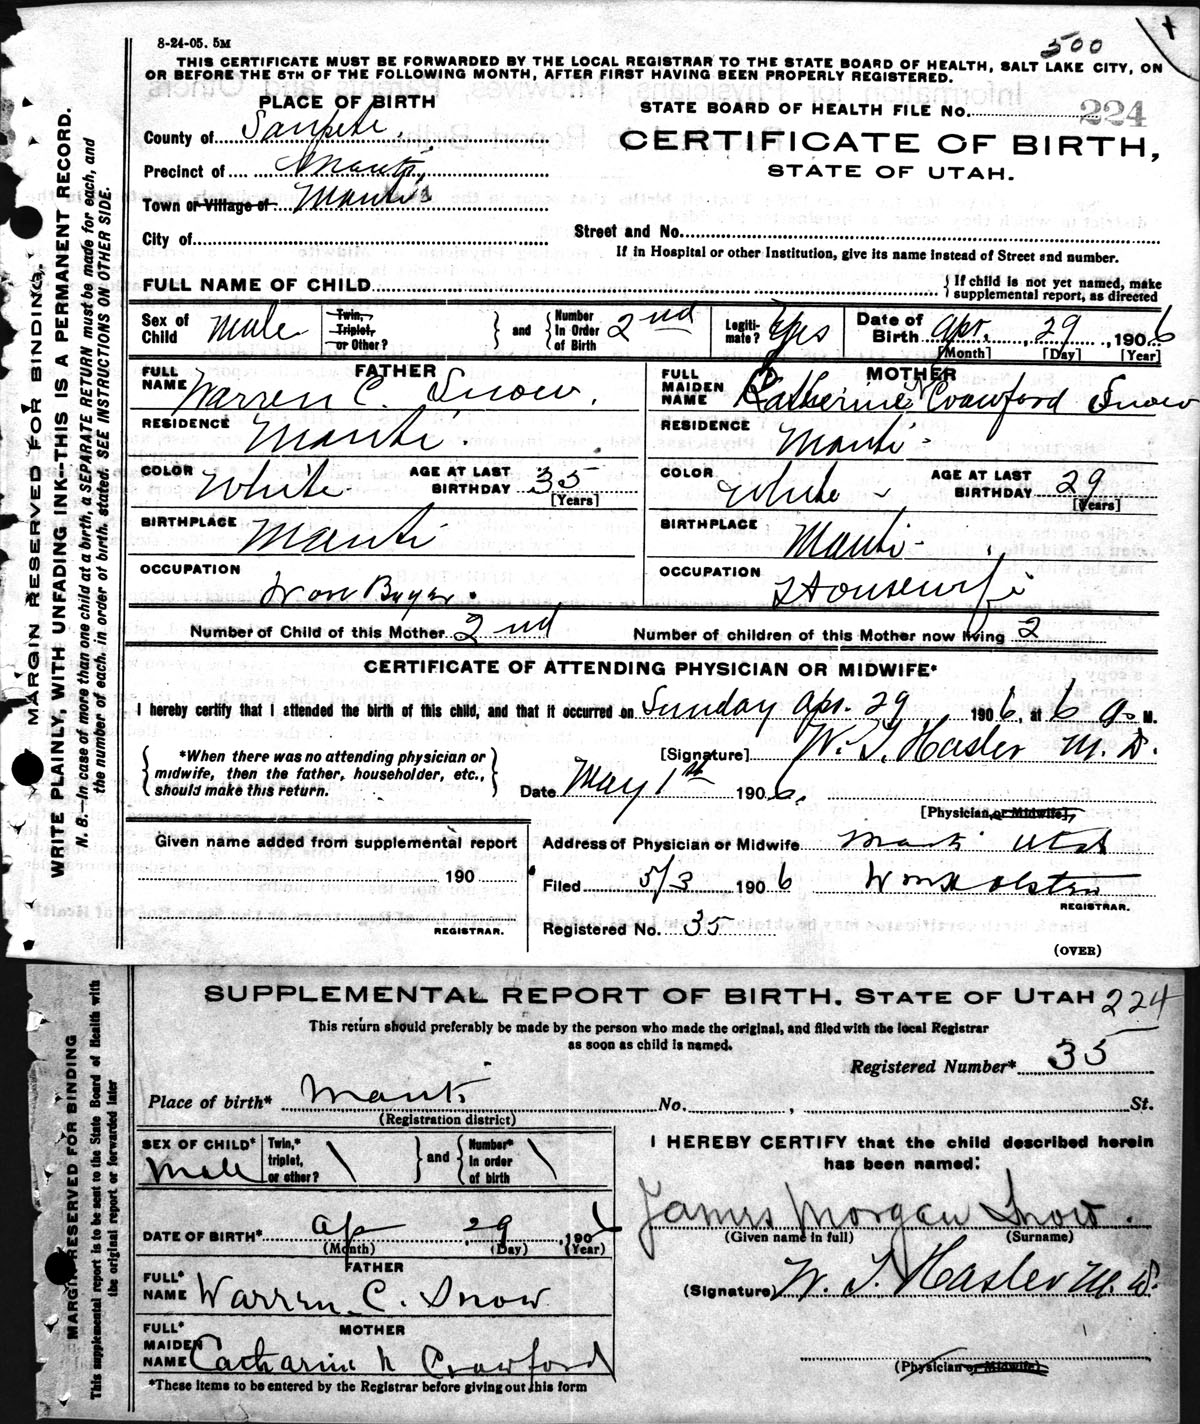 8-24-05. 5M
500
THIS CERTIFICATE MUST BE FORWARDED BY THE LOCAL REGISTRAR TO THE STATE BOARD OF HEALTH, SALT LAKE CITY, ON
OR BEFORE THE 5TH OF THE FOLLOWING MONTH, AFTER FIRST HAVING BEEN PROPERLY REGISTERED.
PLACE OF BIRTH
STATE BOARD OF HEALTH FILE No. 224
County of Sanpete.
CERTIFICATE OF BIRTH,
STATE OF UTAH.
Precinct of Manti,
Town or Village of Manti
City of
Street and No.
If in Hospital or other Institution, give its name instead of Street and number.
FULL NAME OF CHILD
{If child is not yet named, make
supplemental report, as directed
Sex of Child Male
Twin, Triplet, or Other?
} and { Number In Order of Birth 2nd
Legiti- mate? Yes
Date of Birth Apr. 29, 1906
[Month] [Day] [Year]
FATHER
FULL NAME Warren C. Snow.
MOTHER
FULL MAIDEN NAME Catherine N Crawford Snow
RESIDENCE Manti.
RESIDENCE Manti-
COLOR White AGE AT LAST BIRTHDAY 35 [Years]
COLOR White - AGE AT LAST BIRTHDAY 29 [Years]
BIRTHPLACE Manti
BIRTHPLACE Manti-
OCCUPATION Buyer.
OCCUPATION Housewife
Number of Child of this Mother 2nd Number of children of this Mother now living 2
CERTIFICATE OF ATTENDING PHYSICIAN OR MIDWIFE*
I hereby certify that I attended the birth of this child, and that it occurred on Sunday Apr. 29 1906, at 6 a. M.
{ *When there was no attending physician or
midwife, then the father, householder, etc.,
should make this return. }
[Signature] W. T. Hasler M. D.
Date May 1st 1906.
[Physician or Midwife]
Given name added from supplemental report
190
REGISTRAR.
Address of Physician or Midwife Manti Utah
Filed 5/3 1906 Wm Holsten
REGISTRAR.
Registered No. 35
(OVER)
MARGIN RESERVED FOR BINDING.
WRITE PLAINLY, WITH UNFADING INK--THIS IS A PERMANENT RECORD.
N. B.—In case of more than one child at a birth, a SEPARATE RETURN must be made for each, and
the number of each, in order of birth, stated. SEE INSTRUCTIONS ON OTHER SIDE.
SUPPLEMENTAL REPORT OF BIRTH. STATE OF UTAH 224
This return should preferably be made by the person who made the original, and filed with the local Registrar
as soon as child is named.
Registered Number* 35
Place of birth* Manti No. , St.
(Registration district)
SEX OF CHILD* Male
Twin,* triplet, or other?
} and { Number* in order of birth
I HEREBY CERTIFY that the child described herein
has been named:
James Morgan Snow.
(Given name in full) (Surname)
DATE OF BIRTH* Ap 29, 190
(Month) (Day) (Year)
FATHER
FULL* NAME Warren C. Snow
(Signature) W. T. Hasler M. D.
MOTHER
FULL* MAIDEN NAME Catharine N Crawford
(Physician or Midwife)
*These items to be entered by the Registrar before giving out this form
MARGIN RESERVED FOR BINDING
This supplemental report is to be sent to the State Board of Health with
the original report or forwarded later